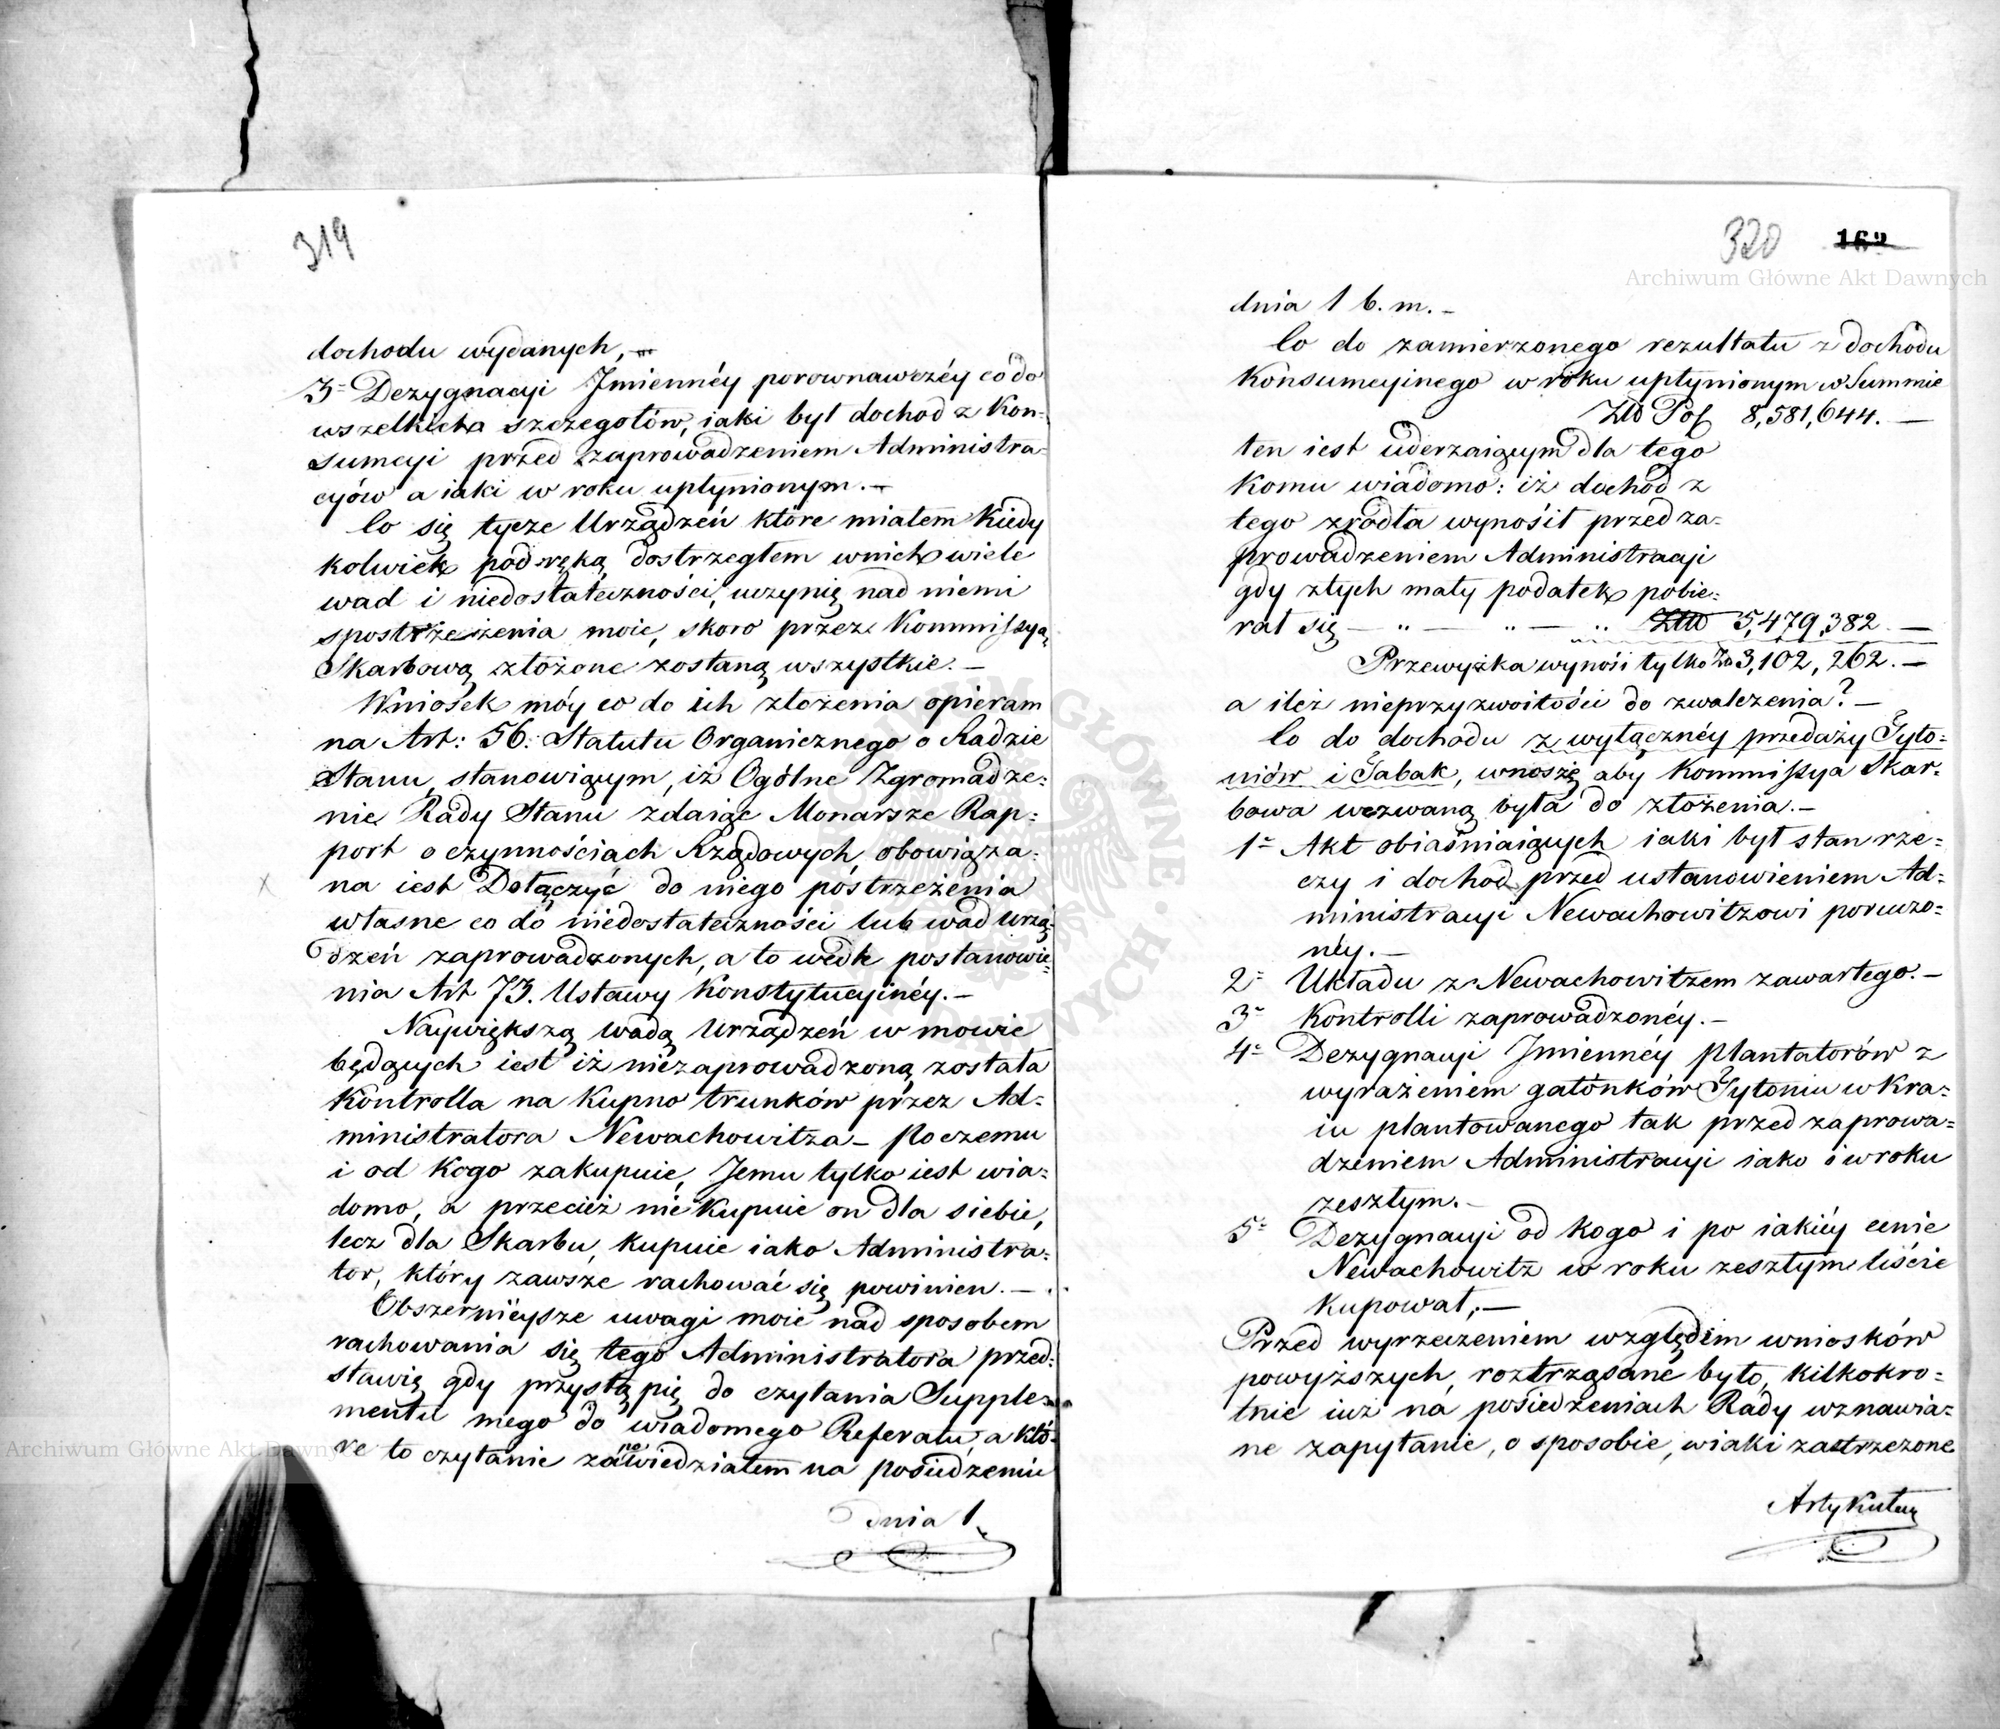 319
dochodu wydanych, —
3= Dezygnacyi Jmiennéy porownawczéy co do
wszelkich szczegołów, iaki był dochod z Kon=
sumcyi przed zaprowadzeniem Administra=
cyów a iaki w roku upłynionym. —
Co się tycze Urządzeń które miałem Kiedy
kolwiek pod ręką dostrzegłem w nich wiele
wad i niedostateczności, uczynię nad niemi
spostrzeżenia moie, skoro przez Kommissyą
Skarbową złożone zostaną wszystkie. —
Wniosek móy co do ich złożenia opieram
na Art: 56. Statutu Organicznego o Radzie
Stanu, stanowiącym, iż Ogólne Zgromadze=
nie Rady Stanu zdaiąc Monarsze Rap=
port o czynnościach Rządowych, obowiąza=
na iest Dołączyć do niego postrzeżenia
własne co do niedostateczności lub wad Urzą=
dzeń zaprowadzonych, a to wedle postanowie=
nia Art 73. Ustawy Konstytucyinéy. —
Naywiększą wadą Urządzeń w mowie
będących iest iż niezaprowadzoną została
Kontrolla na Kupno trunków przez Ad=
ministratora Newachowitza — Po czemu
i od Kogo zakupuie, Jemu tylko iest wia=
domo, a przecież nie Kupuie on dla siebie,
lecz dla Skarbu, Kupuie iako Administra=
tor, który zawsze rachować się powinien. —
Obszernieysze uwagi moie nad sposobem
rachowania się tego Administratora przed=
stawię gdy przystąpię do czytania Supple=
mentu mego do wiadomego Referatu, a któ=
re to czytanie zapowiedziałem na posiedzeniu
dnia 1
320 162
Archiwum Główne Akt Dawnych
dnia 1 b. m. —
Co do zamierzonego rezultatu z dochodu
Konsumcyinego w roku upłynionym w Summie
Złł Pol 8,581,644. —
ten iest uderzaiącym dla tego
komu wiadomo: iż dochod z
tego zrodła wynosił przed za=
prowadzeniem Administracyi
gdy z tych mały podatek pobie=
rał się — " — " — " Złł 5,479,382. —
Przewyżka wynosi tylko Zł 3,102,262. —
a ileż nieprzyzwoitości do zwalczenia? —
Co do dochodu z wyłącznéy przedaży Tyto=
niów i Tabak, wnoszę aby Kommissya Skar=
bowa wezwaną była do złożenia. —
1= Akt obiaśniaiących iaki był stan rze=
czy i dochod przed ustanowieniem Ad=
ministracyi Newachowitzowi poruczo=
néy. —
2= Układu z Newachowitzem zawartego. —
3= Kontrolli zaprowadzonéy. —
4= Dezygnacyi Jmiennéy plantatorów z
wyrażeniem gatónków Tytoniu w Kra=
iu plantowanego tak przed zaprowa=
dzeniem Administracyi iako i w roku
zeszłym. —
5= Dezygnacyi od kogo i po iakiéy cenie
Newachowitz w roku zeszłym liście
kupował; —
Przed wyrzeczeniem względem wniosków
powyższych, roztrząsane było, kilkokro=
tnie iuż na posiedzeniach Rady wznawia=
ne zapytanie, o sposobie, w iaki zastrzeżone
Artykułem
Archiwum Główne Akt Dawnych